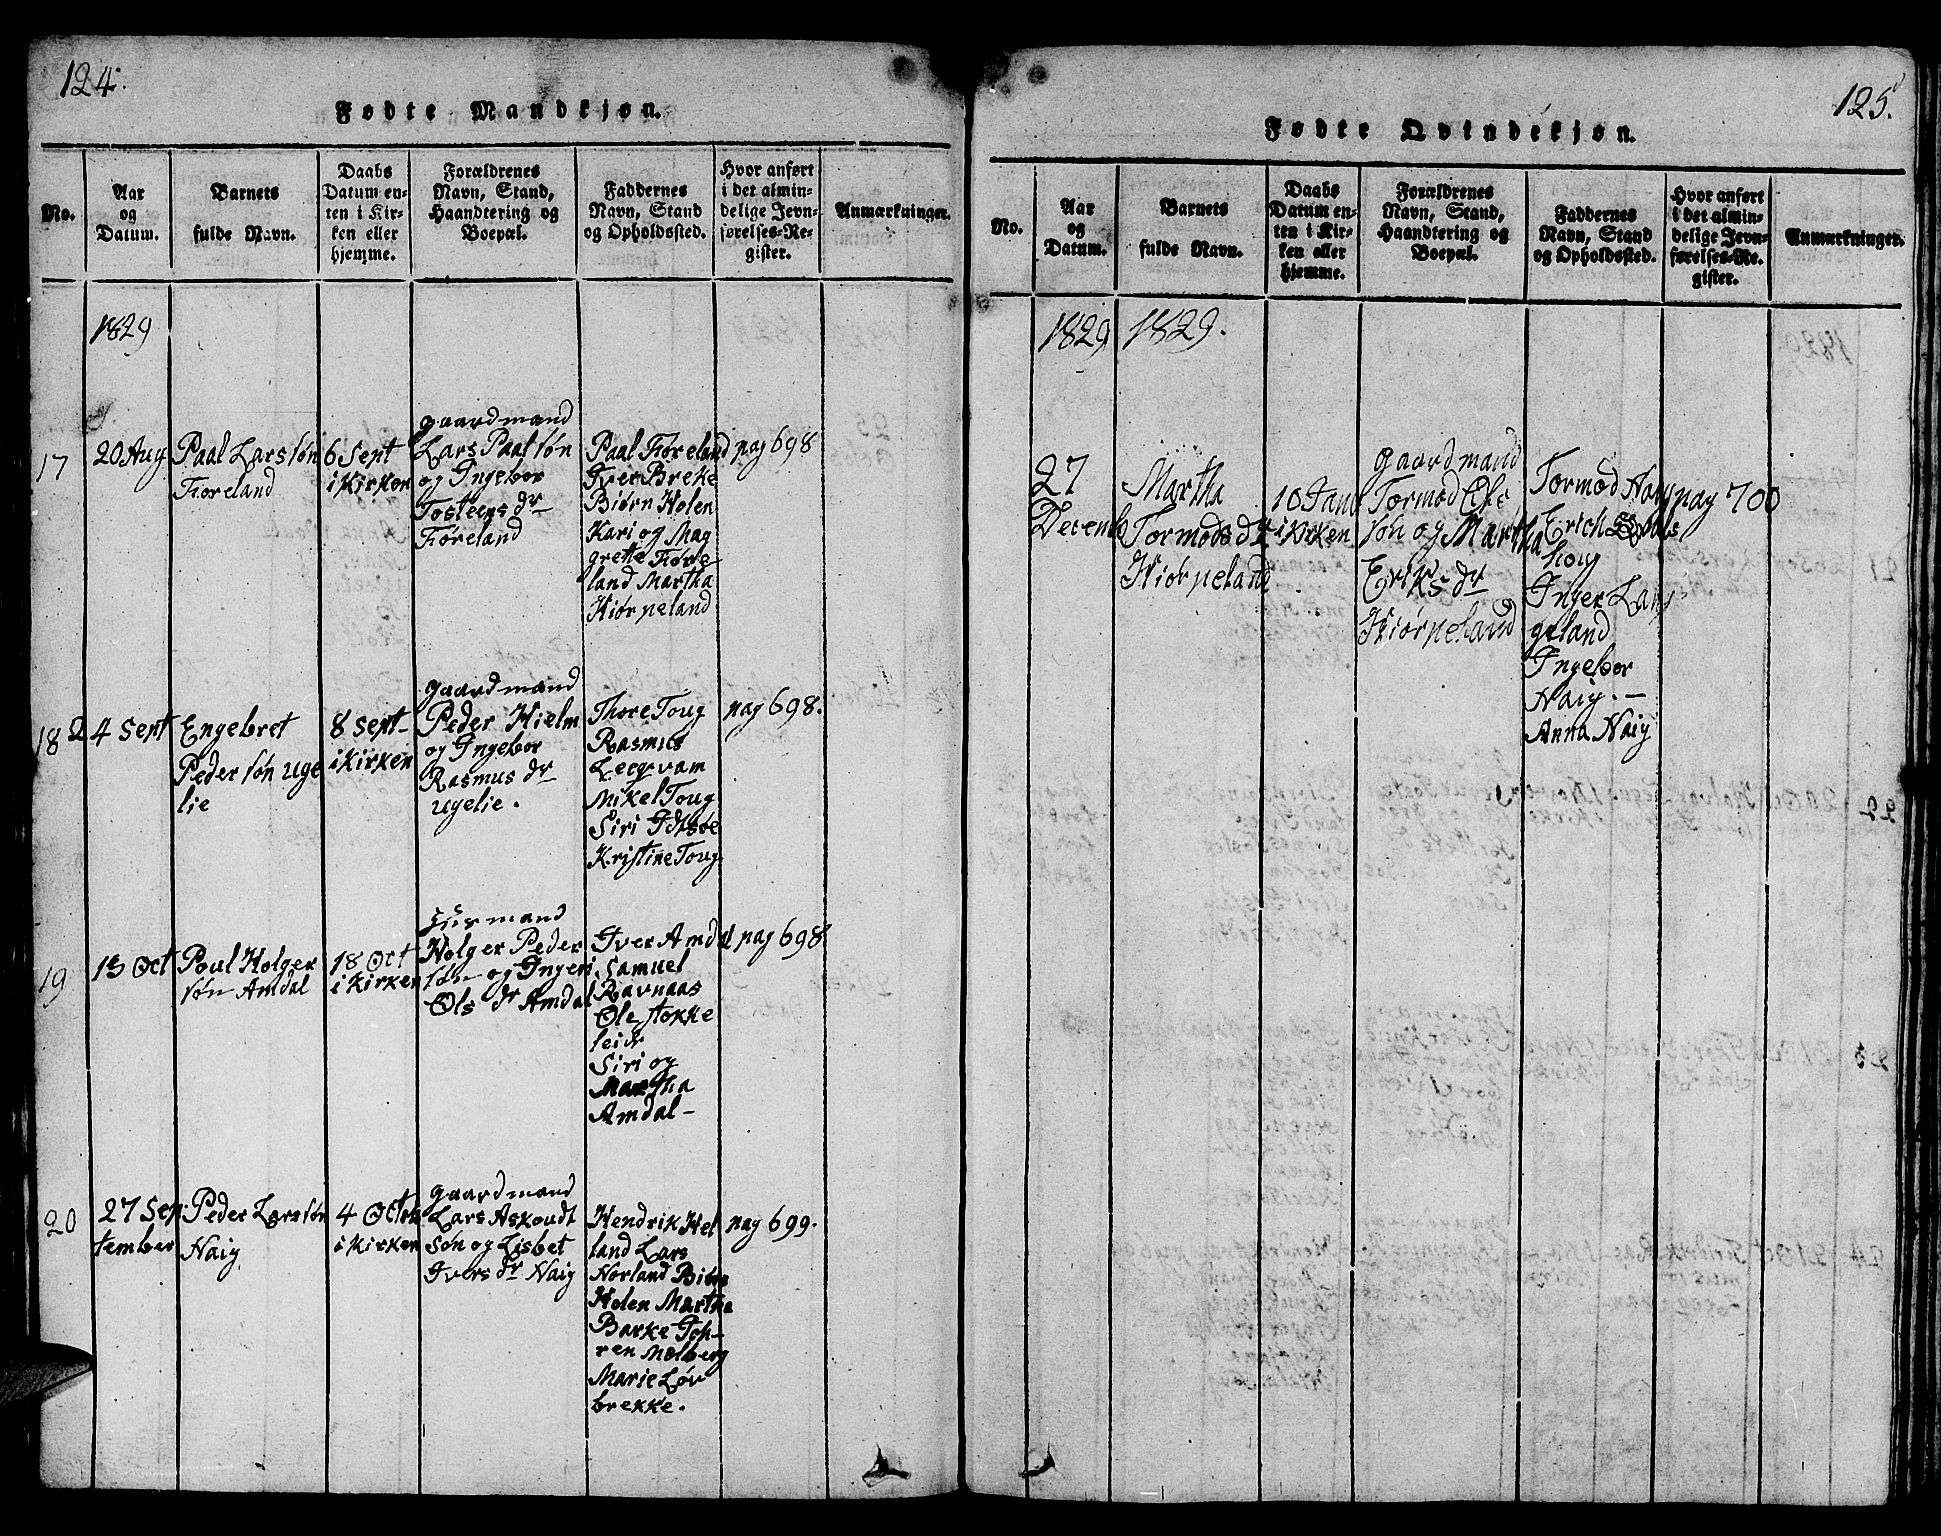 124.
Fødte Mandkjøn.
No.
Aar
og
Datum.
Barnets
fulde Navn.
Daabs
Datum en-
ten i Kir-
ken eller
hjemme.
Forældrenes
Navn, Stand,
Haandtering og
Boepæl.
Faddernes
Navn, Stand
og Opholdssted.
Hvor anført
i det almin-
delige Jevn-
førelses-Re-
gister.
Anmærkninger.
1829
17
20 Aug
Paal Larssøn
Fiøreland
6 Sept
i Kirken
gaardmand
Lars Paalsøn
og Ingebor
Tosteens dr
Fiøreland
Paal Fiøreland
Iver Breke
Biørn Holen
Kari og Mag
grette Fiøre
land Martha
Kiørpeland
pag 698
18
4 Sept
Engebret
Pedersøn Uge
lie
8 Sept
i Kirken
gaardmand
Peder Hielm
og Ingebor
Rasmus dr
Ugelie.
Thore Toug
Rasmus
Leeqvam
Mikel Toug
Siri Idtsøe
Kristine Toug
pag 698.
19
13 Oct
Poul Holger
søn Amdal
18 Oct
i Kirken
Husmand
Holger Peder
søn og Ingeri
Ols dr Amdal
Iver Amdal
Samuel
Ravnaas
Ole Stokke
leidr
Siri og
Martha
Amdal-
pag 698
20
27 Sep
tember
Peder Larssøn
Naig
4 Octob
i Kirken
gaardmand
Lars Askoudt
Søn og Lisbet
Ivers dr Naig
Hendrik Hel
land Lars
Norland Biørn
Holen Martha
Barke Joh-
ren Molberg
Marie Løv
brekke.
pag 699.
125.
Fødte Qvindekjøn.
No.
Aar
og
Datum.
Barnets
fulde Navn.
Daabs
Datum en-
ten i Kir-
ken eller
hjemme.
Forældrenes
Navn, Stand,
Haandtering og
Boepæl.
Faddernes
Navn, Stand
og Opholdssted.
Hvor anført
i det almin-
delige Jevn-
førelses-Re-
gister.
Anmærkninger.
1829
1829.
27
Decemb
Martha
Tormods dr
Kiørpeland
10 Janu
i Kirken
gaardmand
Tormod Ols
søn og Martha
Eriks dr
Kiørpeland
Tormod Naig
Erich
houg
Inger Lan
geland
Ingebor
Naig.-
Anna Naig
pag 700